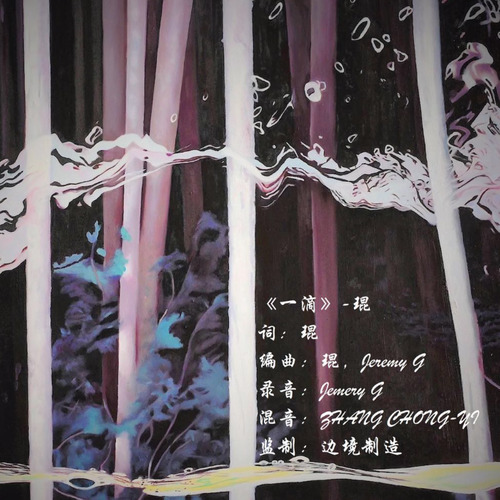 《一滴》-琨
词：琨
编曲：琨，Jeremy G
录音：Jemery G
混音：ZHANG CHONG-YI
监制：边境制造